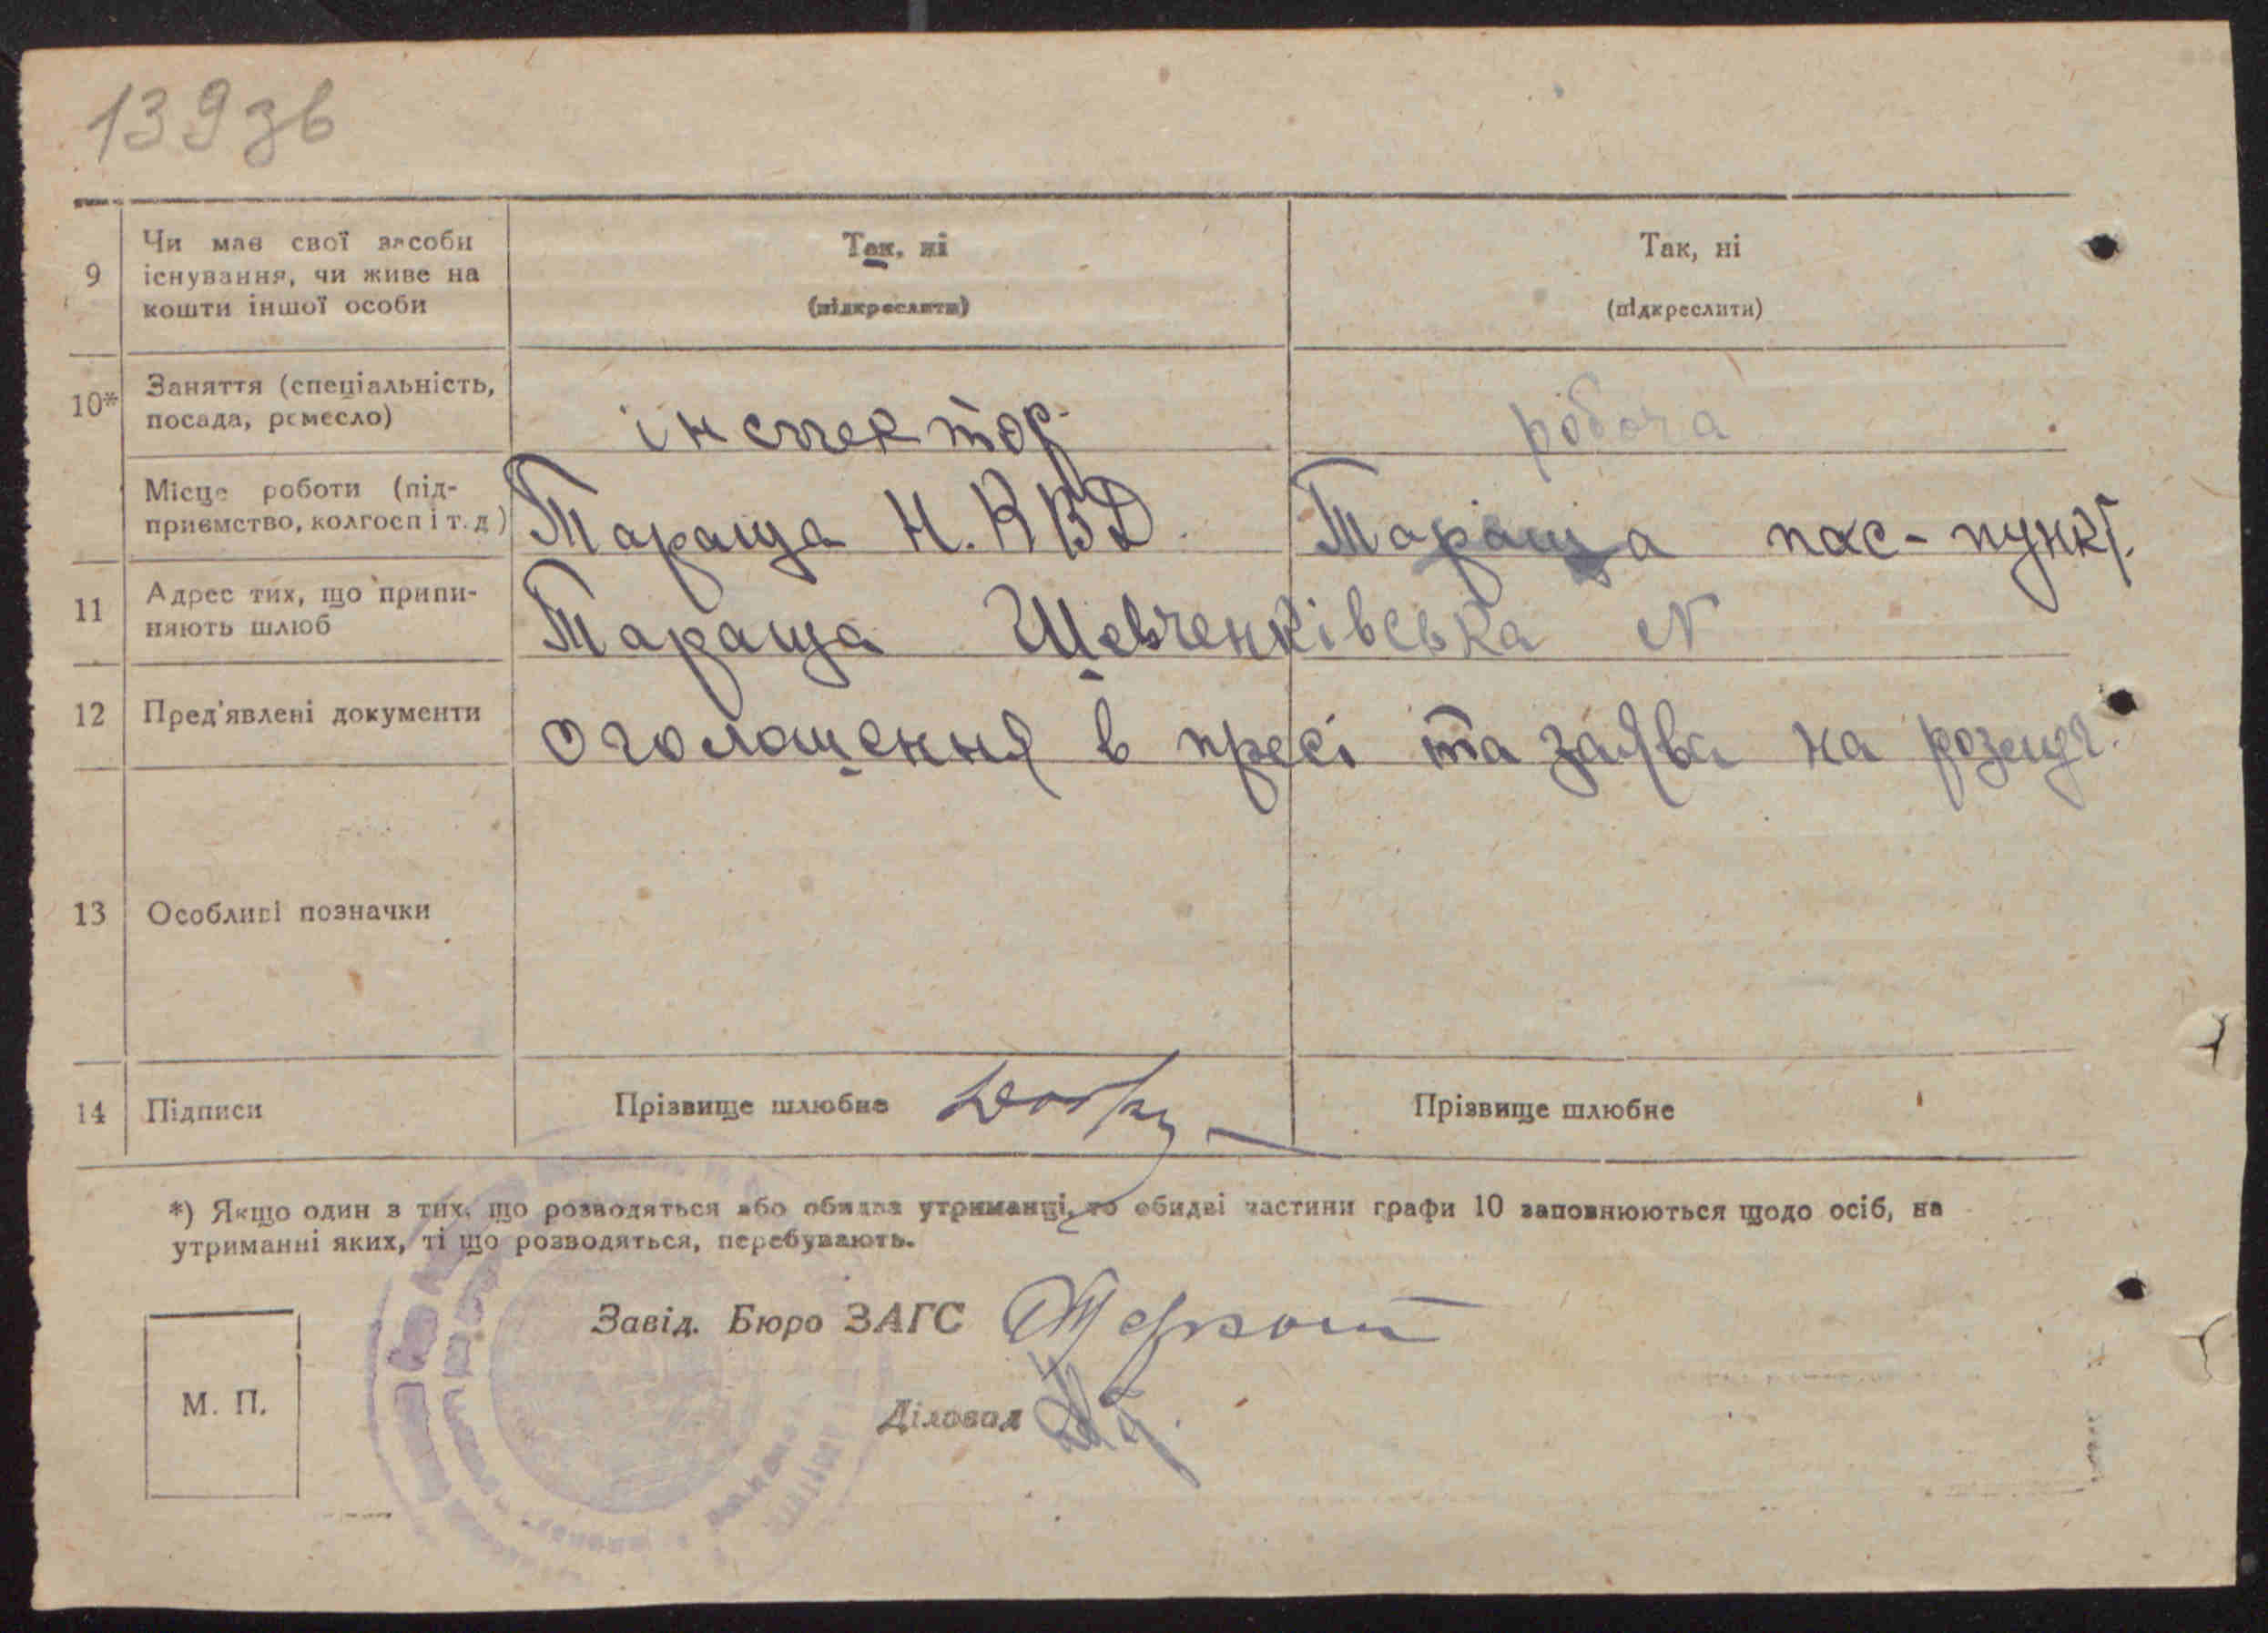 139зв
9 Чи має свої засоби Так, ні Так, ні
існування, чи живе на
кошти іншої особи (підкреслити) (підкреслити)
10* Заняття (спеціальність,
посада, ремесло) інспектор робоча
Місце роботи (під-
приємство, колгосп і т. д) Тараща Н.КВД. Тараща пас-пункт.
11 Адрес тих, що припи-
няють шлюб Тараща Шевченківська N
12 Пред'явлені документи оголошення в пресі та заява на розлуч.
13 Особливі позначки
14 Підписи Прізвище шлюбне Прізвище шлюбне
*) Якщо один з тих, що розводяться або обидва утриманці, то обидві частини графи 10 заповнюються щодо осіб, на
утриманні яких, ті що розводяться, перебувають.
Завід. Бюро ЗАГС
М. П.
Діловод